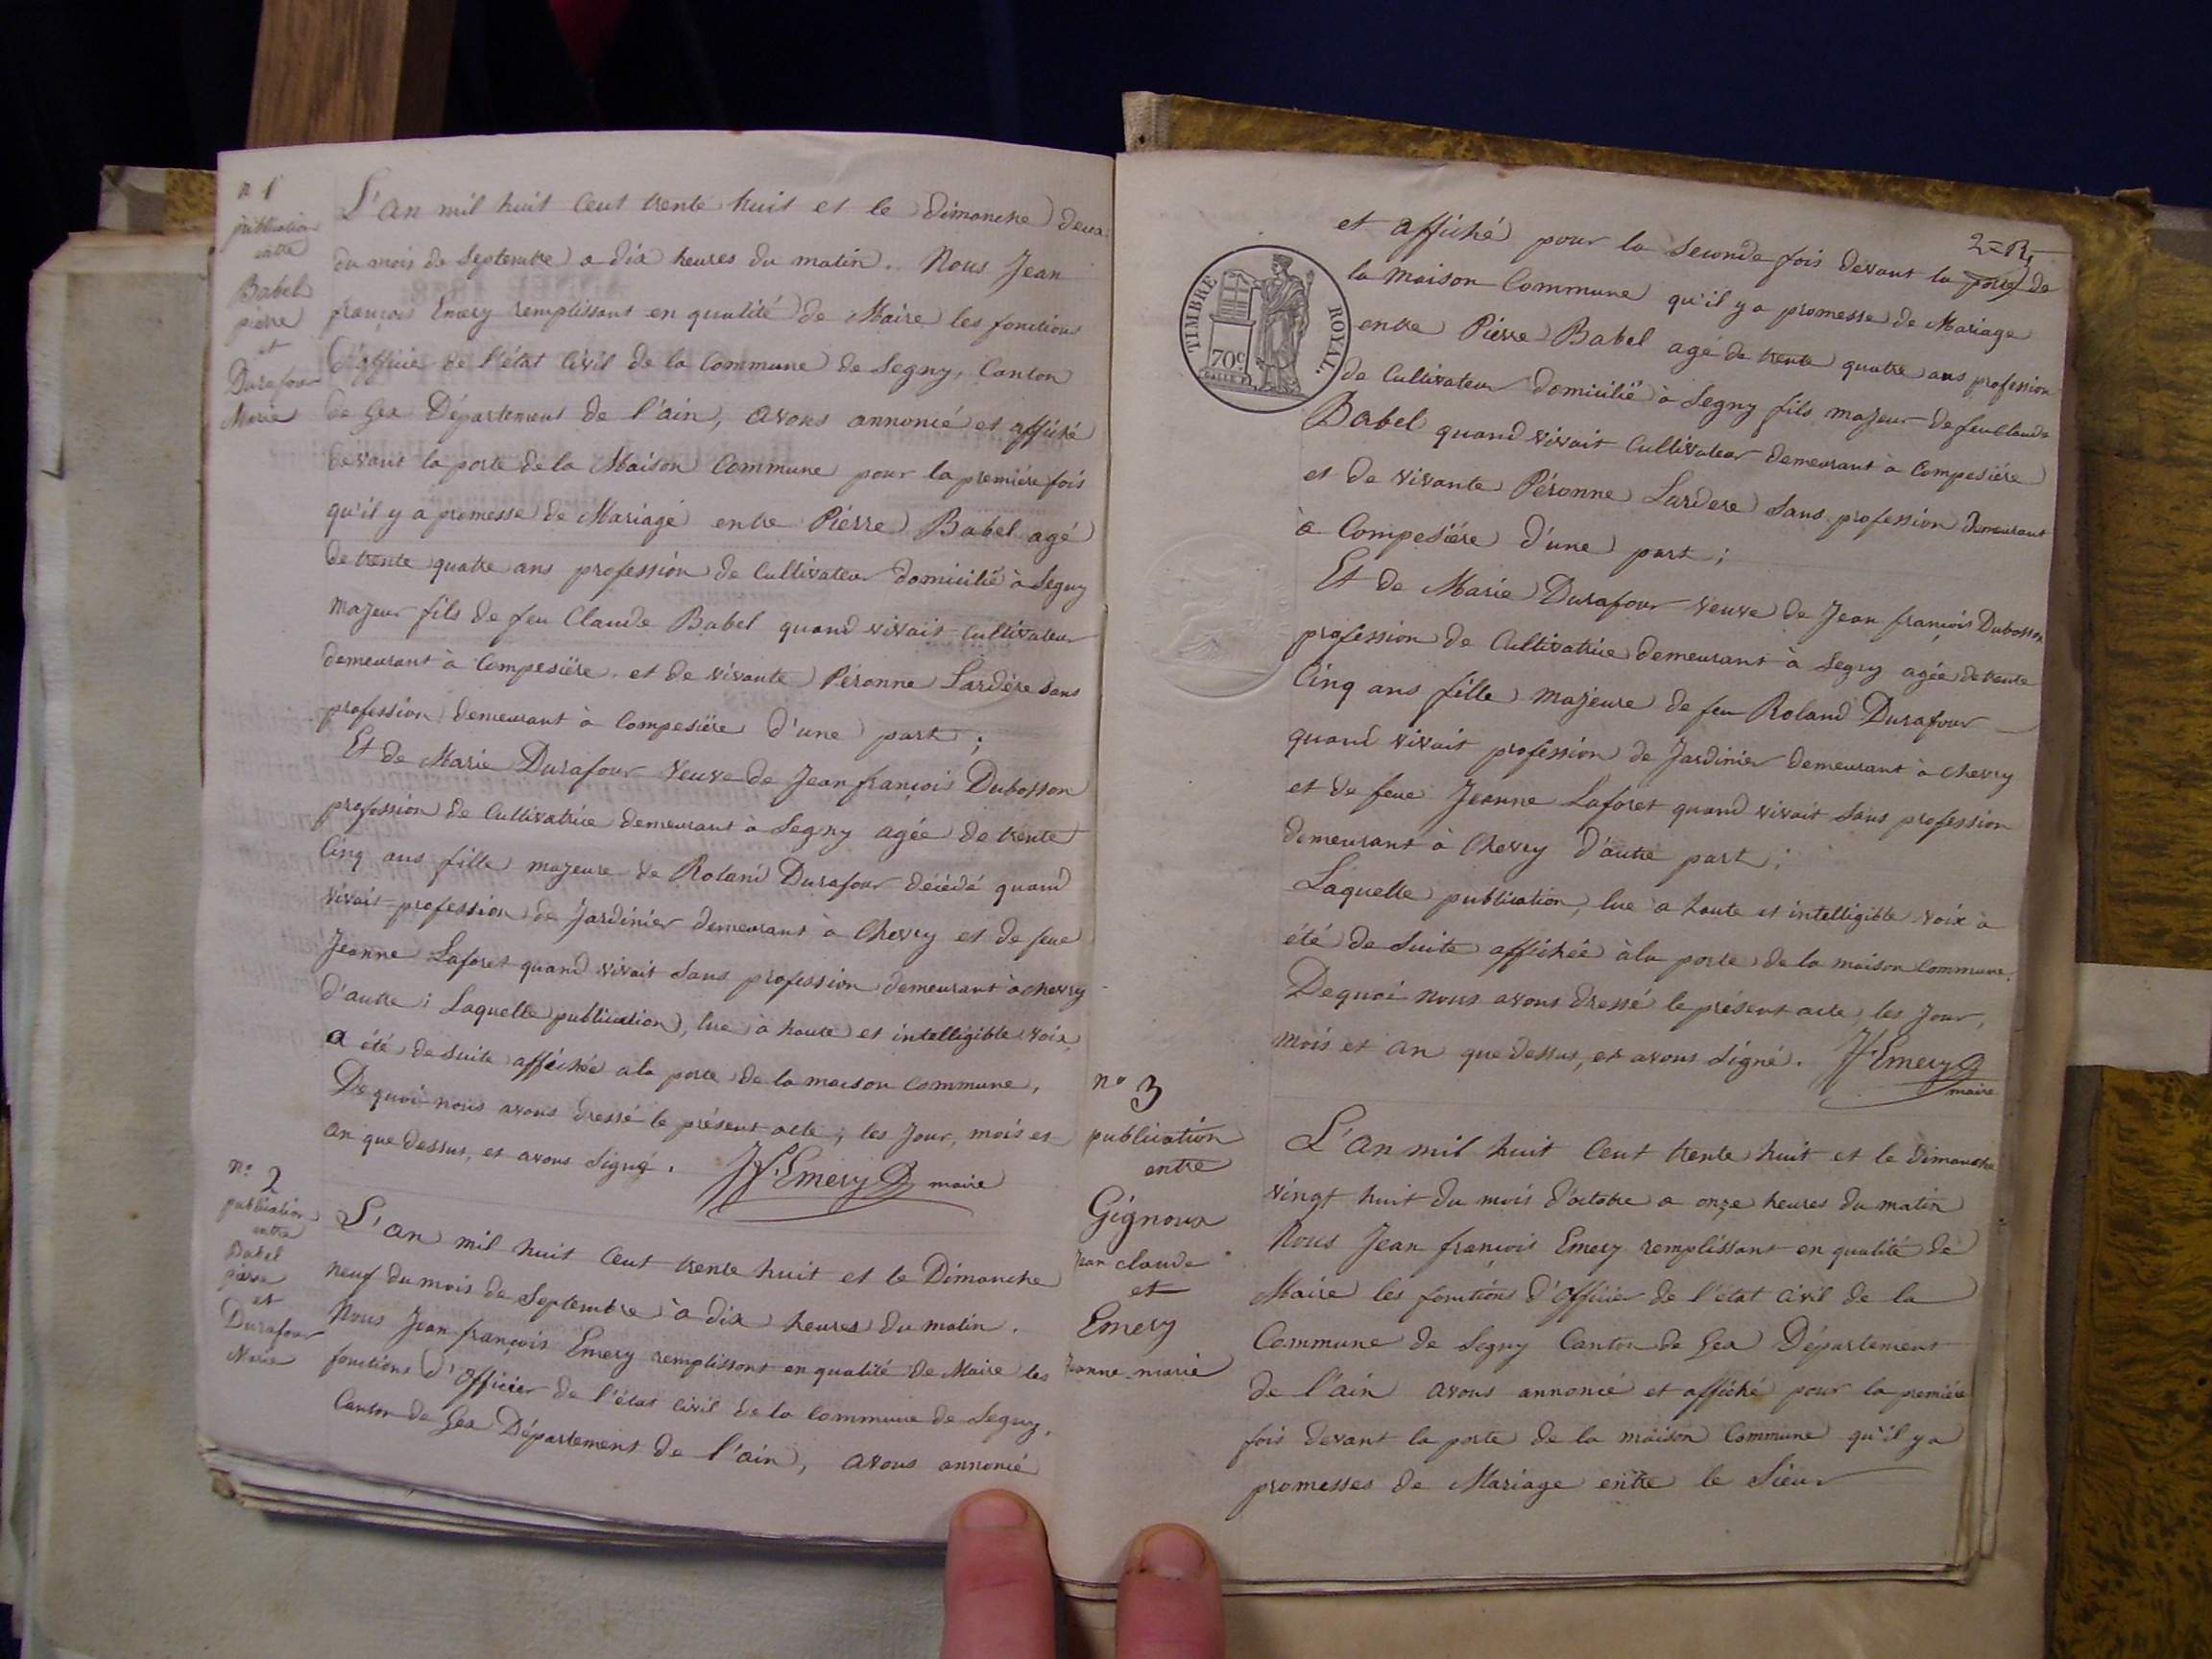 n° 1
publication
entre
Babel
pierre
et
Durafour
Marie
L'an mil huit Cent trente huit et le Dimanche deux
du mois de Septembre a dix heures du matin. Nous Jean
françois Emery remplissant en qualité de Maire les fonctions
d'officier de l'état Civil de la Commune de Segny, Canton
de Gex Département de l'ain, avons annoncé et affiché
devant la porte de la Maison Commune pour la premiére fois
qu'il y a promesse de Mariage entre Piérre Babel agé
de trente quatre ans profession de Cultivateur domicilié à Segny
majeur fils de feu Claude Babel quand vivait Cultivateur
demeurant à Compesiére et de vivante Péronne Lardére sans
profession demeurant à Compesiére d'une part ;
Et de Marie Durafour veuve de Jean françois Dubosson
profession de Cultivatrice demeurant à Segny agée de trente
Cinq ans fille majeure de Roland Durafour décédé quand
vivait profession de Jardinier demeurant à Chevry et de feue
Jeanne Laforet quand vivait Sans profession demeurant à chevry
d'autre ; Laquelle publication, lue à haute et intelligible voix,
a été de Suite affichée a la porte de la maison Commune.
De quoi nous avons dressé le présent acte ; les Jour, mois et
an que dessus, et avons Signé. JF. Emery maire
n° 2
publication
entre
Babel
pierre
et
Durafour
Marie
L'an mil huit Cent trente huit et le Dimanche
neuf du mois de Septembre à dix heures du matin.
Nous Jean françois Emery remplissant en qualité de Maire les
fonctions d'Officier de l'état Civil de la Commune de Segny,
Canton de Gex Département de l'ain, avons annoncé
2
et affiché pour la Seconde fois devant la porte de
la maison Commune qu'il y a promesse de Mariage
entre Piérre Babel agé de trente quatre ans profession
de Cultivateur domicilié à Segny fils majeur de feu Claude
Babel quand vivait Cultivateur demeurant à Compesiére
et de vivante Péronne Lardere Sans profession demeurant
à Compesiére d'une part ;
Et de Marie Durafour veuve de Jean françois Dubosson
profession de Cultivatrice demeurant à Segny agée de trente
Cinq ans fille majeure de feu Roland Durafour
quand vivait profession de Jardinier demeurant à chevry
et de feue Jeanne Laforet quand vivait Sans profession
demeurant à Chevry d'autre part ;
Laquelle publication, lue a haute et intelligible voix à
été de Suite affichée à la porte de la maison Commune.
De quoi nous avons dressé le présent acte, les Jour,
mois et an que dessus, et avons Signé. JF. Emery
maire
TIMBRE ROYAL.
70c
n° 3
publication
entre
Gignoux
Jean claude
et
Emery
Jeanne marie
L'an mil huit Cent trente huit et le Dimanche
vingt huit du mois d'octobre a onze heures du matin
Nous Jean françois Emery remplissant en qualité de
Maire les fonctions d'Officier de l'état Civil de la
Commune de Segny Canton de Gex Département
de l'ain avons annoncé et affiché pour la premiére
fois devant la porte de la maison Commune qu'il y a
promesses de Mariage entre le Sieur